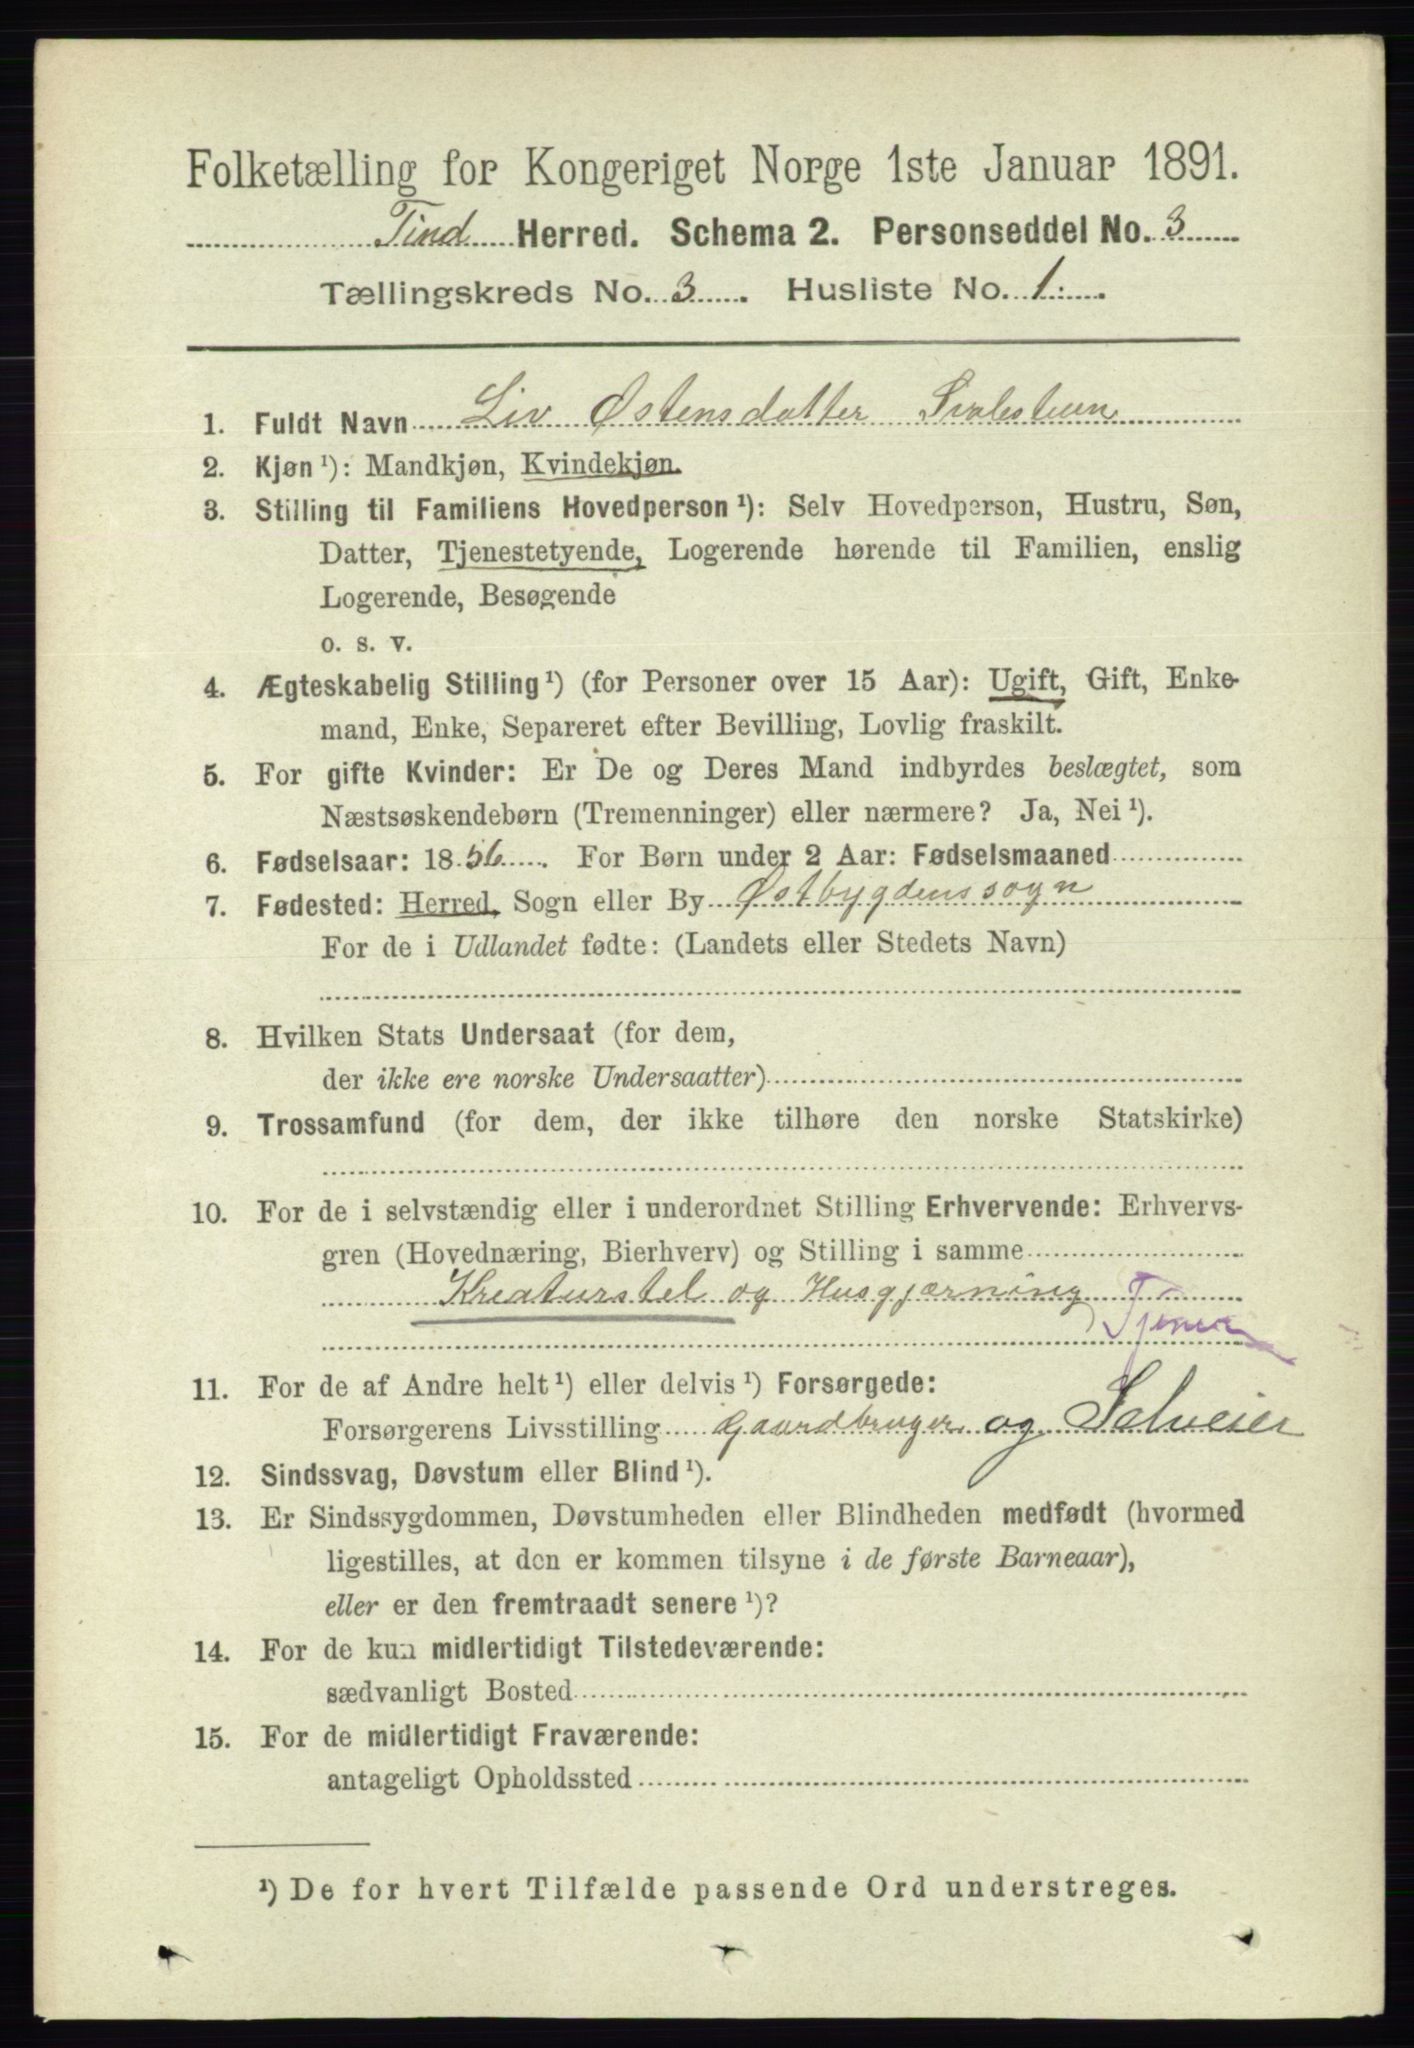 Folketælling for Kongeriget Norge 1ste Januar 1891.
Tind Herred. Schema 2. Personseddel No. 3
Tællingskreds No. 3. Husliste No. 1.
1. Fuldt Navn Liv Østensdatter
2. Kjøn¹): Mandkjøn, Kvindekjøn.
3. Stilling til Familiens Hovedperson¹): Selv Hovedperson, Hustru, Søn,
Datter, Tjenestetyende, Logerende hørende til Familien, enslig
Logerende, Besøgende
o. s. v.
4. Ægteskabelig Stilling¹) (for Personer over 15 Aar): Ugift, Gift, Enke-
mand, Enke, Separeret efter Bevilling, Lovlig fraskilt.
5. For gifte Kvinder: Er De og Deres Mand indbyrdes beslægtet, som
Næstsøskendebørn (Tremenninger) eller nærmere? Ja, Nei¹).
6. Fødselsaar: 1856. For Børn under 2 Aar: Fødselsmaaned
7. Fødested: Herred, Sogn eller By Østbygdenssogn
For de i Udlandet fødte: (Landets eller Stedets Navn)
8. Hvilken Stats Undersaat (for dem,
der ikke ere norske Undersaatter)
9. Trossamfund (for dem, der ikke tilhøre den norske Statskirke)
10. For de i selvstændig eller i underordnet Stilling Erhvervende: Erhvervs-
gren (Hovednæring, Bierhverv) og Stilling i samme
Kreaturstel og Husgjærning
Tjener
11. For de af Andre helt¹) eller delvis¹) Forsørgede:
Forsørgerens Livsstilling Gaardbruger og Selveier
12. Sindssvag, Døvstum eller Blind¹).
13. Er Sindssygdommen, Døvstumheden eller Blindheden medfødt (hvormed
ligestilles, at den er kommen tilsyne i de første Barneaar),
eller er den fremtraadt senere¹)?
14. For de kun midlertidigt Tilstedeværende:
sædvanligt Bosted
15. For de midlertidigt Fraværende:
antageligt Opholdssted
¹) De for hvert Tilfælde passende Ord understreges.